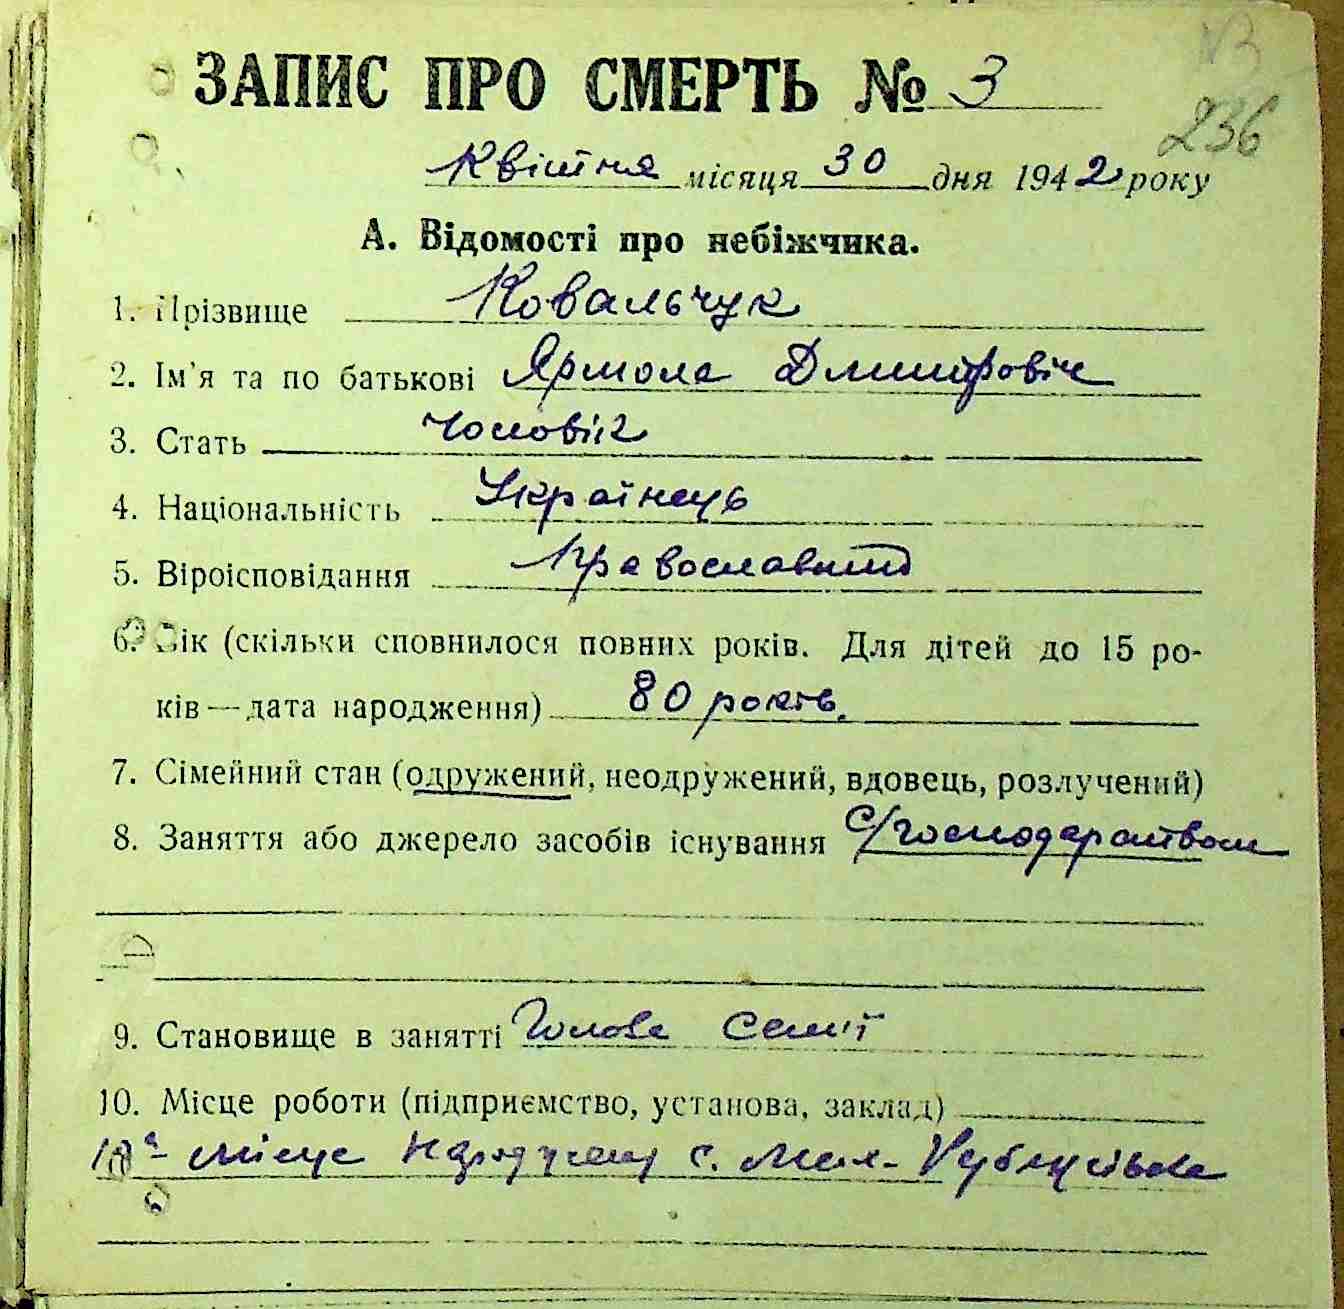 236
ЗАПИС ПРО СМЕРТЬ № 3
Квітня місяця 30 дня 1942 року
А. Відомості про небіжчика.
1. Прізвище Ковальчук
2. Ім'я та по батькові Ярмола Дмитровіч
3. Стать Чоловік
4. Національність Українець
5. Віроісповідання Православний
6. Вік (скільки сповнилося повних років. Для дітей до 15 ро-
ків — дата народження) 80 років.
7. Сімейний стан (одружений, неодружений, вдовець, розлучений)
8. Заняття або джерело засобів існування С/господарством
9. Становище в занятті Голова семʼї
10. Місце роботи (підприємство, установа, заклад)
10а- місце народжен с. Мал-